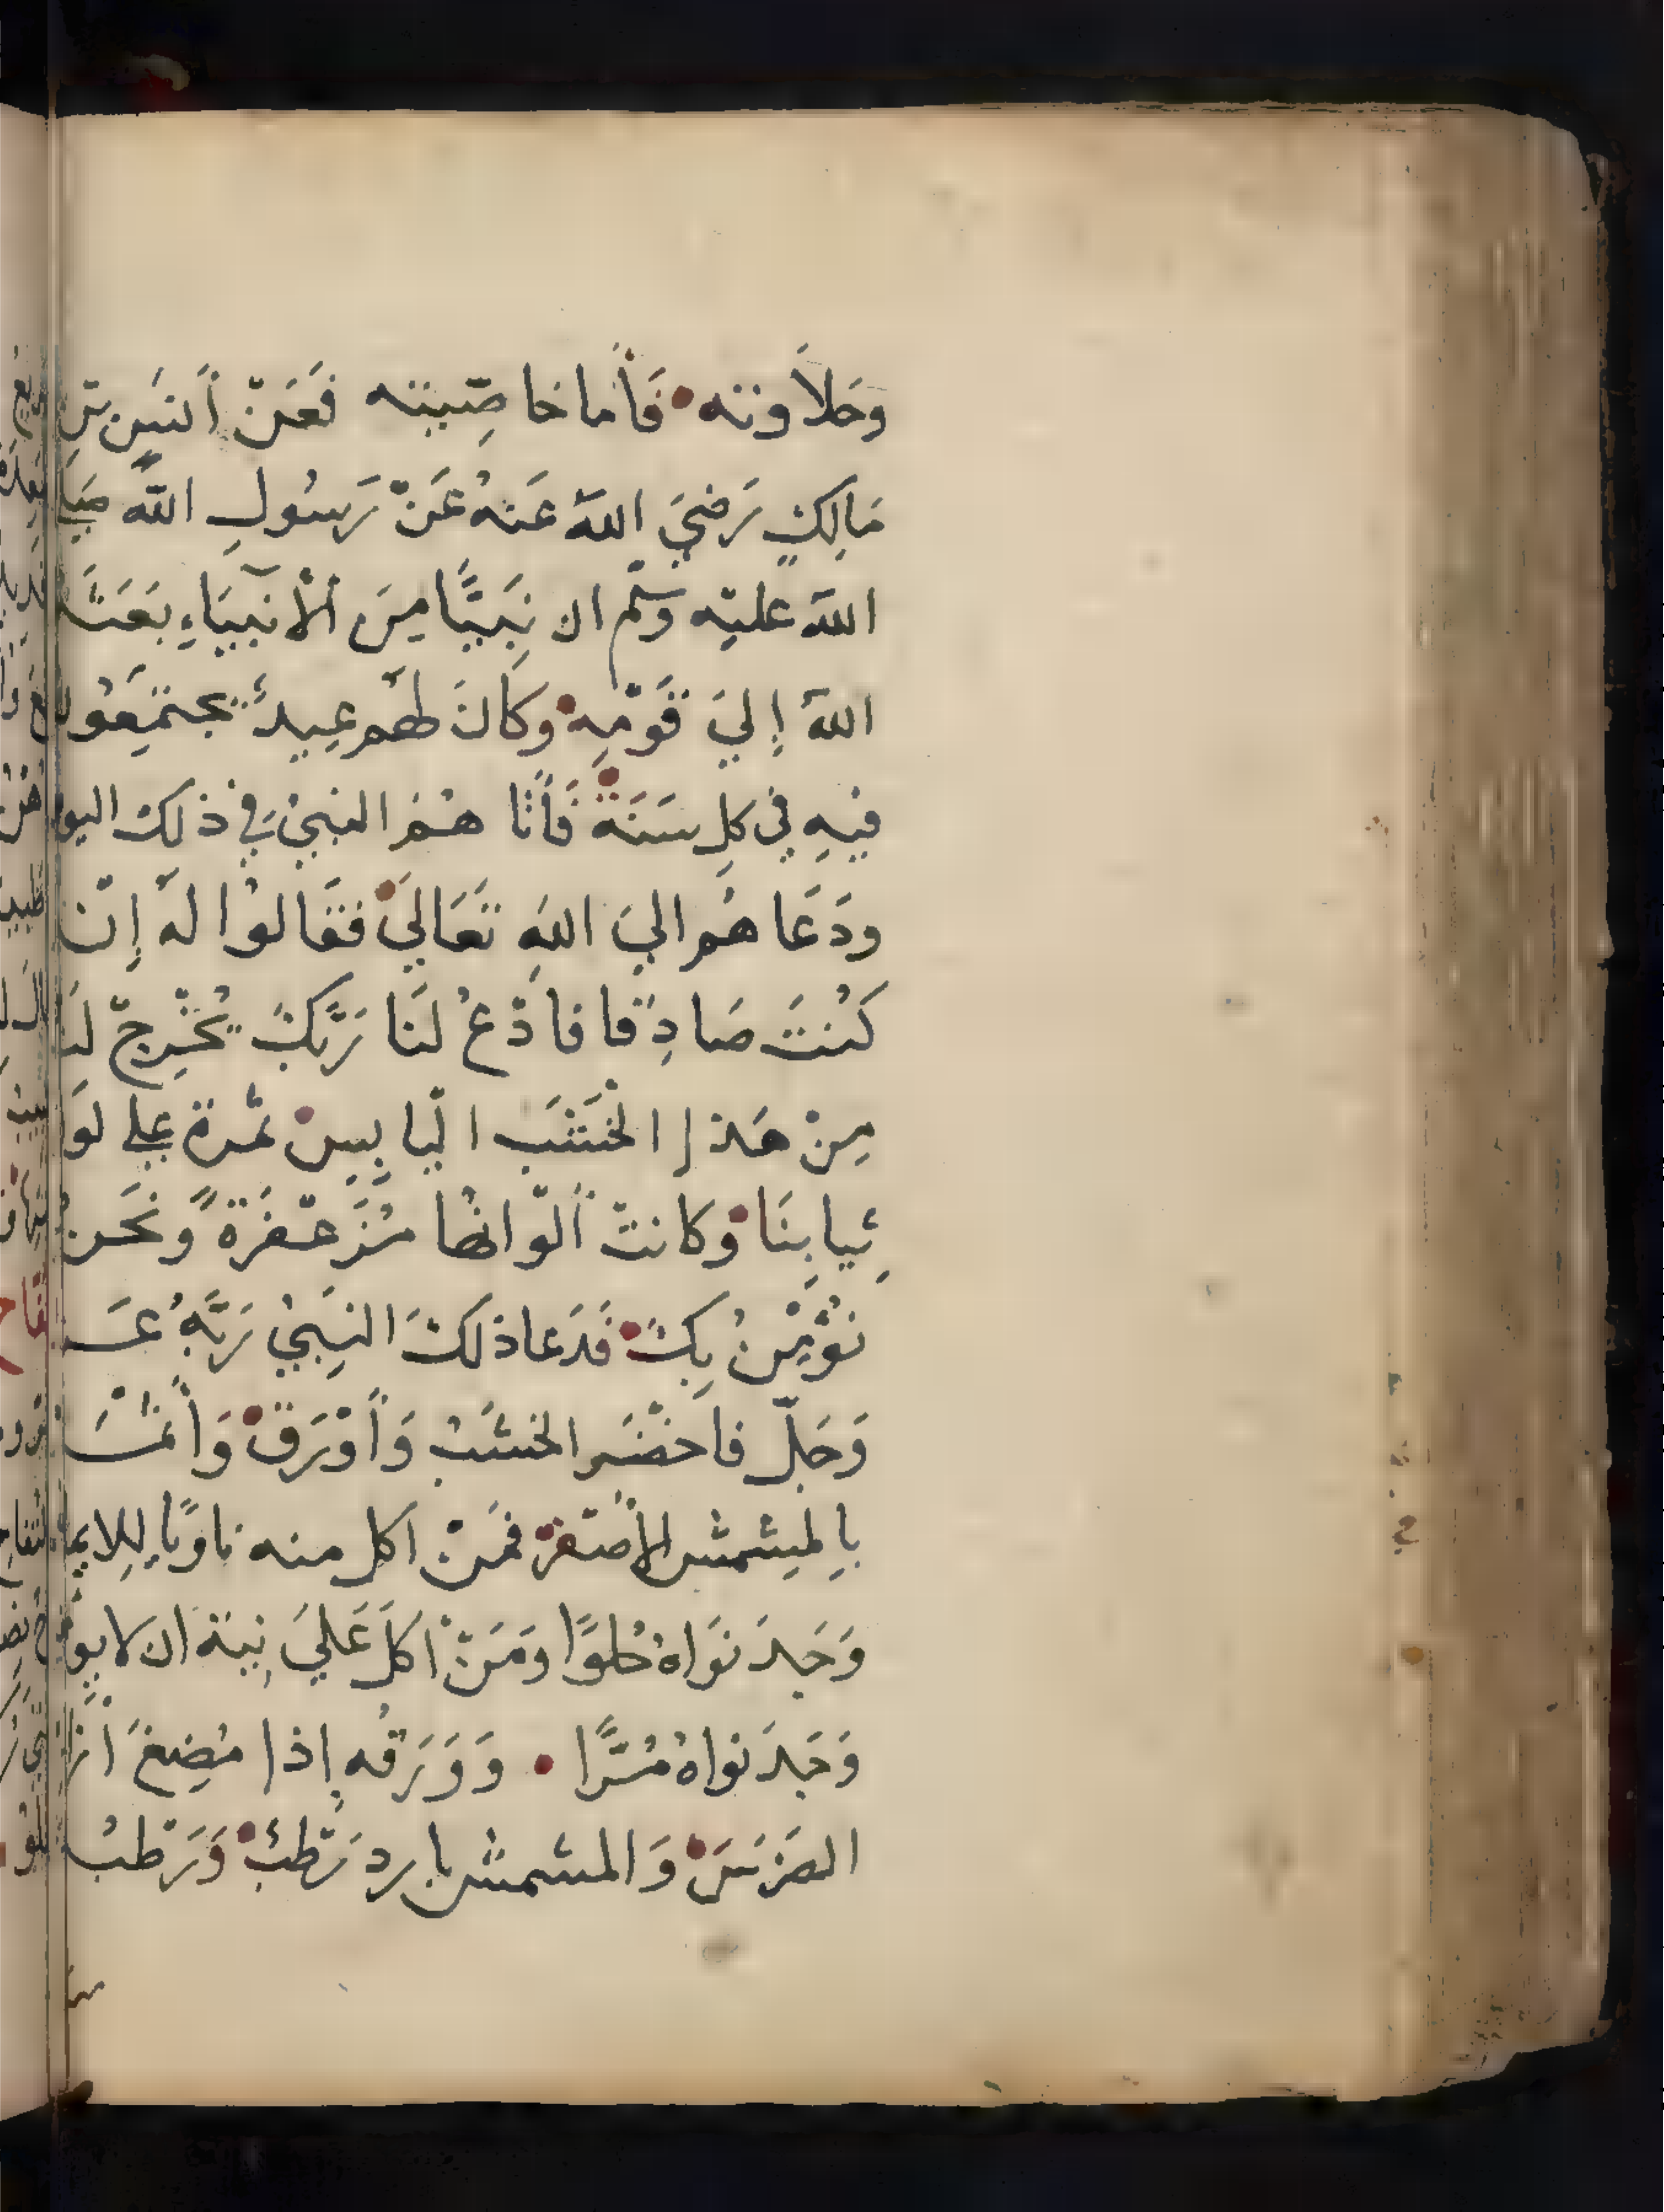 وحَلاَوته فَأما خاصِّيته فَعَنْ أنَسِ بْنِ
مَالِكٍ رَضيَ اللهُ عَنهُ عَنْ رَسُولِ اللهِ صَلي
اللهُ عليْه وسَلّم ان نَبِيًّا مِنَ الأنبيَاءِ بَعَثَهُ
اللهُ إليَ قَوْمِهِ وكَانَ لهم عِيدٌ يجتمِعُون
فيهِ في كلِ سَنَة فَأتاهُمْ النبيُ في ذلكَ اليوم
ودَعَاهُم اليَ اللهِ تَعَاليَ فقَالوُا لهُ إنْ
كُنتَ صَادِقا فادْعُ لنَا رَبّكَ يُخْرِجْ لنَا
مِنْ هَذا الخَشَب اليابِسِ ثمرة علي لون
ثِيابِنَا وكانتْ ألْوانها مُزَعْفَرَةً ونَحْن
نؤْمِنُ بِكَ فَدَعا ذلكَ النَبيُ رَبّهُ عَز
وَجَلّ فاخضَر الخشَبُ وَأوْرَقَ وَأثمَرَ
بِالمِشمش الأصْفَر فمَنْ اكل منه ناوِيًا للايما
وَجَدَ نَوَاهُ حُلوًا ومَنْ أكلَ عَليَ نِية ان لا يو
وَجَدَ نواهُ مُرًّا وَوَرَقُه إذا مُضِغَ أزا
الضَرَسَ وَالمشمش بارد رَطبٌ وَرَطبُ